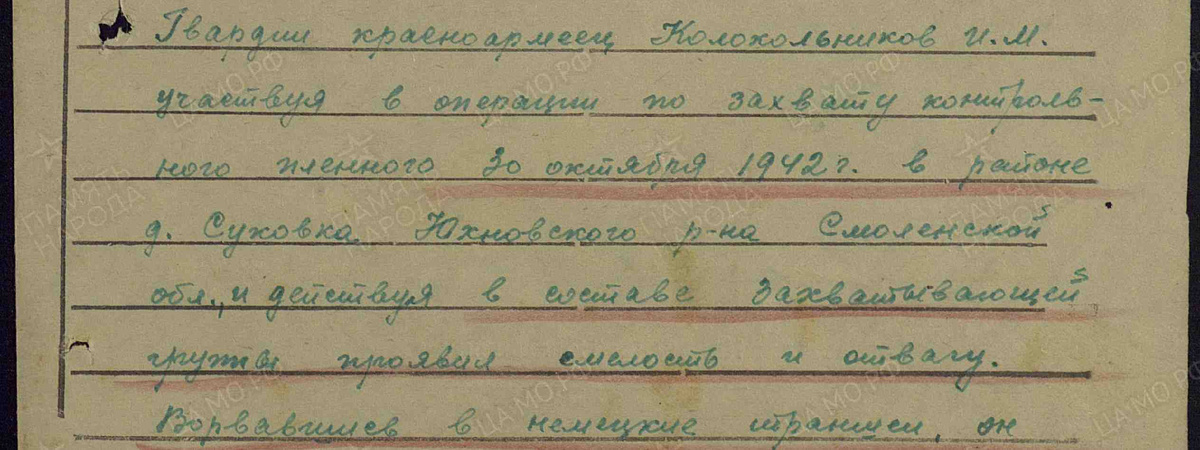 Гвардии красноармеец Колокольников И.М.
участвуя в операции по захвату контроль-
ного пленного 30 октября 1942 г. в районе
д. Суковка Юхновского р-на Смоленской
обл., и действуя в составе захватывающей
группы проявил смелость и отвагу.
Ворвавшись в немецкие траншеи, он